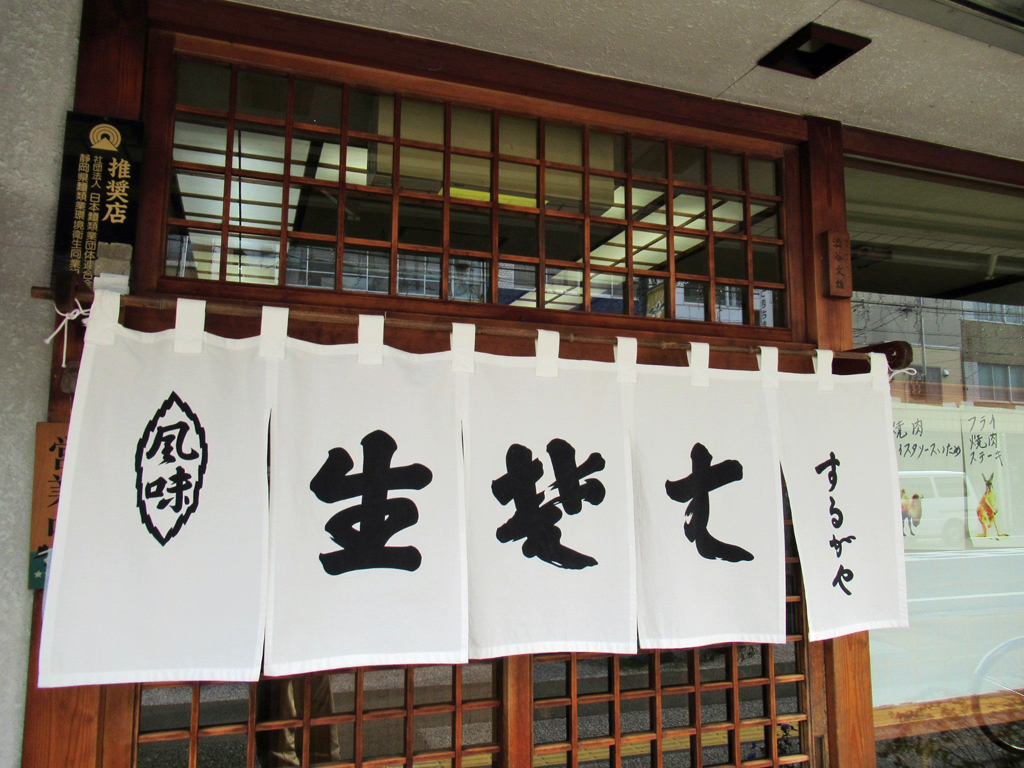 推奨店
社団法人 日本麺類業団体連合
静岡県麺類業環境衛生同業
風味
生楚者
するがや
営業
焼肉
スタソースいため
フライ
焼肉
ステーキ